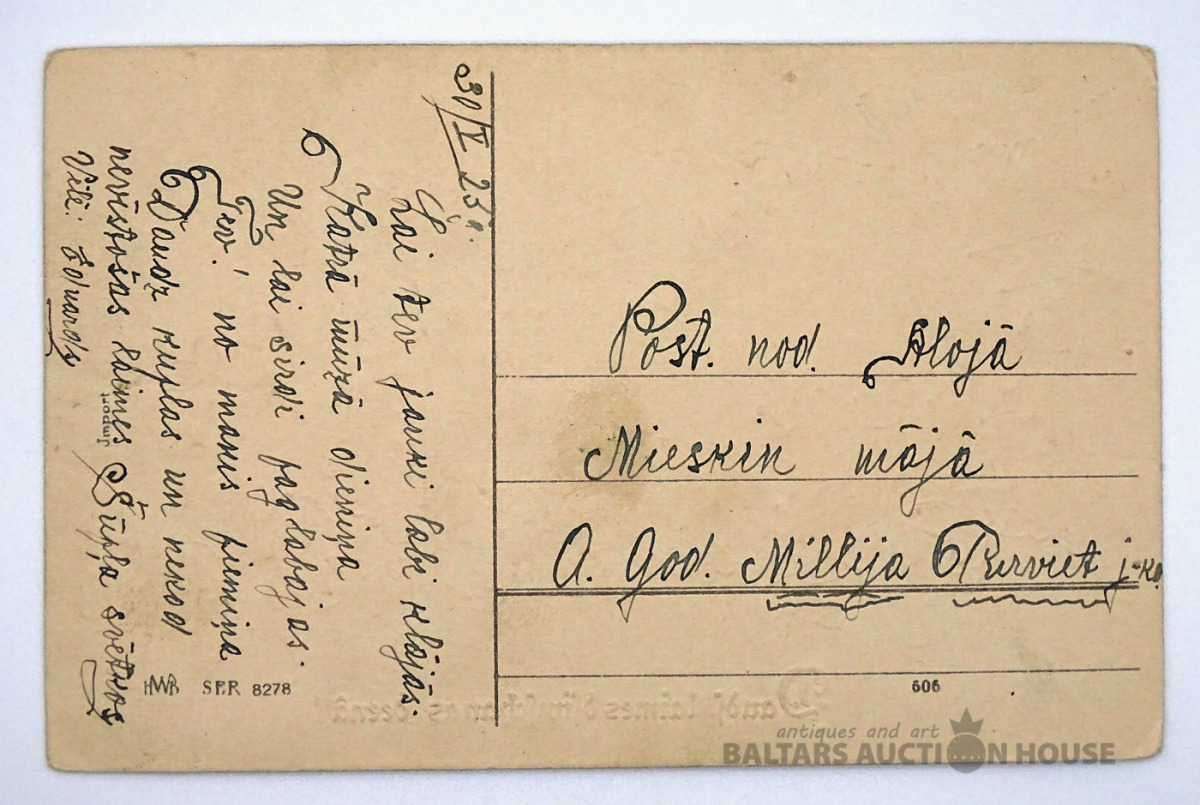 30/V 25g.
Lai tev jauki labi klājās.
Katrā mūža dieniņa
Un lai sirdi paglabajas.
Tev! no manis piemiņa
Daudz kuplas un nekad
nevīstošas laimes Šūpļa svētkos
Vēlē: Eduards
Import
HWB SER 8278
Post. nod. Alojā
Mieskin mājā
A. God. Millija Purviet j-kd.
606
Daudz laimes dzimschanas deenā
antiques and art
BALTARS AUCTION HOUSE